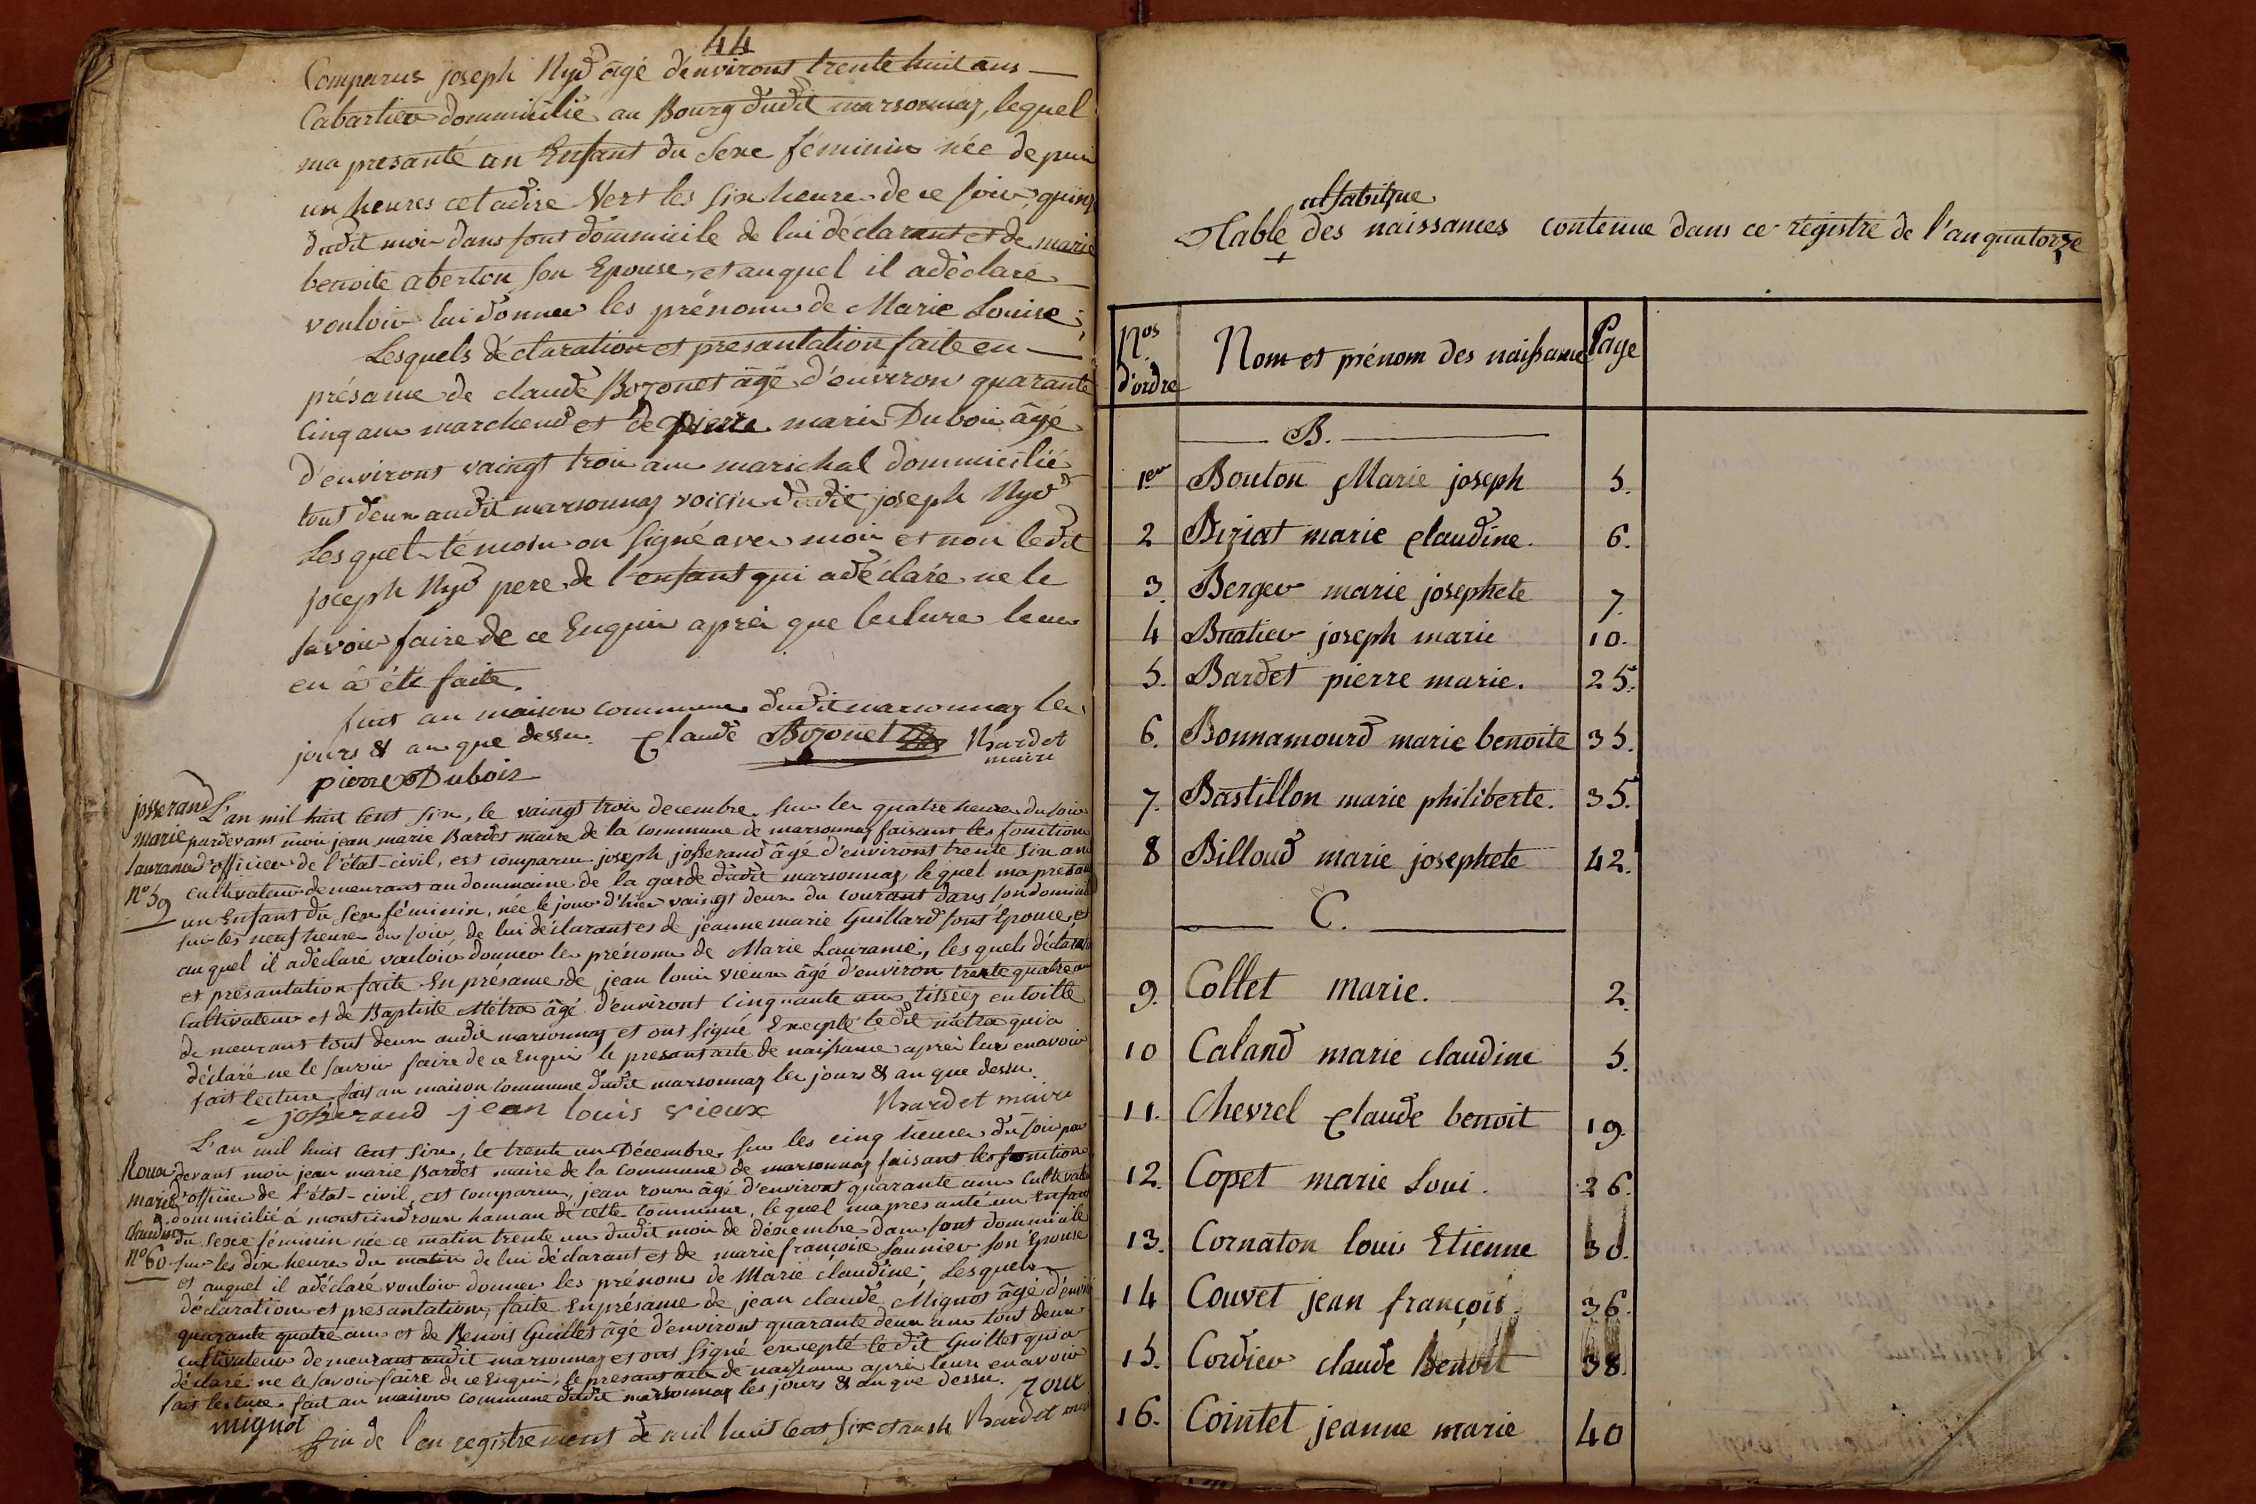 44
Comparus joseph Nyd âgé d'environt trente huit ans
Cabartier dommicilié au Bourg dudit marsonnaz, lequel
ma presanté un Enfant du sexe féminin née depui
un heures cetadire Vert les six heure de ce soir, quinz
dudit moi dans sont dommicile de lui déclarant et de marie
benoite aberton son Epouse, et auquel il adéclaré
vouloir lui donner les prénoms de Marie Louise;
Lesquels déclaration et presantation faite en
présance de claude Bozonet âgé d'environ quarante
cinq ans marchend et de pierre marie Duboi âgé
d'environt vaingt troi ans marichal dommicilié
tout deux audit marsonnaz voisin dudit joseph Nyd
Lesquel témoin on signé avec moi et non ledit
joseph Nyd pere de l'enfant qui adéclaré ne le
savoir faire de ce Enquis aprèi que lecture leur
en â été faite.
fait au maison commune dudit marsonnaz les
jours & an que dessu. Claude Bozonet Bardet
maire
pierre Dubois
josserand
marie
lauranse
n° 59
L'an mil huit cent six, le vaingt troi decembre, sur les quatre heure du soir
pardevant moi jean marie Bardet maire de la commune de marsonnaz faisant les fonction
d'officier de l'état-civil, est comparu joseph josserand âgé d'environt trente six ans
cultivateur demeurant au dommaine de la garde dudit marsonnaz, lequel ma presanté
un Enfant du sexe féminin, née le jour d'hier vaingt deux du courant dans son domicil
sur les neuf heure du soir, de lui déclarant et de jeanne marie Guillard sont Epouse, et
auquel il adéclaré vouloir donner les prénoms de Marie Lauranse; les quels déclarati
et présantation faite En présance de jean louis vieux âgé d'environ trente quatre an
cultivateur et de Baptiste Métra âgé d'environt cinquante ans tissiez en toille
demeurant tout deux audit marsonnaz et ont signé Excepté le dit métra qui a
déclaré ne le savoir faire de ce Enquis le presant acte de naissance aprèi leur en avoir
fait lecture, fait au maison commune dudit marsonnaz les jours & an que dessu.
josserand jean louis vieux Bardet maire
Roux
marie
claudine
n° 60
L'an mil huit cent six, le trente un Décembre, sur les cinq heure du soir par
devant moi jean marie Bardet maire de la commune de marsonnaz faisant les fonction
d'officier de l'état-civil, est comparu, jean roux âgé d'environt quarante ans cultivate
dommicilié à montsimdroux haman de cette commune, lequel ma presanté un Enfant
du sexe féminin née ce matin trente un dudit moi de décembre dans sont dommicile
sur les dix heure du matin de lui déclarant et de marie françoise saunier son Epouse
et auquel il adéclaré vouloir donner les prénoms de Marie claudine; Lesquels
déclaration et presantation, faite En présance de jean claude Mignot âgé d'envir
quarante quatre ans et de Benoit Guillet âgé d'environt quarante deux ans tout deux
cultivateur demeurant audit marsonnaz et ont signé excepté le dit Guillet qui a
déclaré ne le savoir faire de ce Enquis, le presant acte de naissance aprèi leur en avoir
fait lecture, fait au maison commune dudit marsonnaz les jours & an que dessu. roux
mignot
fin de l'enregistrement de mil huit cent six Bardet
alfabitque
Table des naissances contenue dans ce registre de l'an quatorze
Nos d'ordre Nom et prénom des naissance Page
B.
1er Bouton Marie joseph 5.
2 Biziat marie claudine. 6.
3. Berger marie josephete 7.
4 Buatier joseph marie 10.
5. Bardet pierre marie. 25.
6. Bonnamourd marie benoite 35.
7. Bastillon marie philiberte. 35.
8 Billoud marie josephete 42.
C.
9. Collet Marie. 2.
10 Caland marie claudine 5.
11. Chevrel Claude benoit 19.
12. Copet marie Loui. 26.
13. Cornaton loui Etienne 30.
14 Couvet jean françois. 36.
15. Cordier claude Benoit 38.
16. Cointet jeanne marie 40